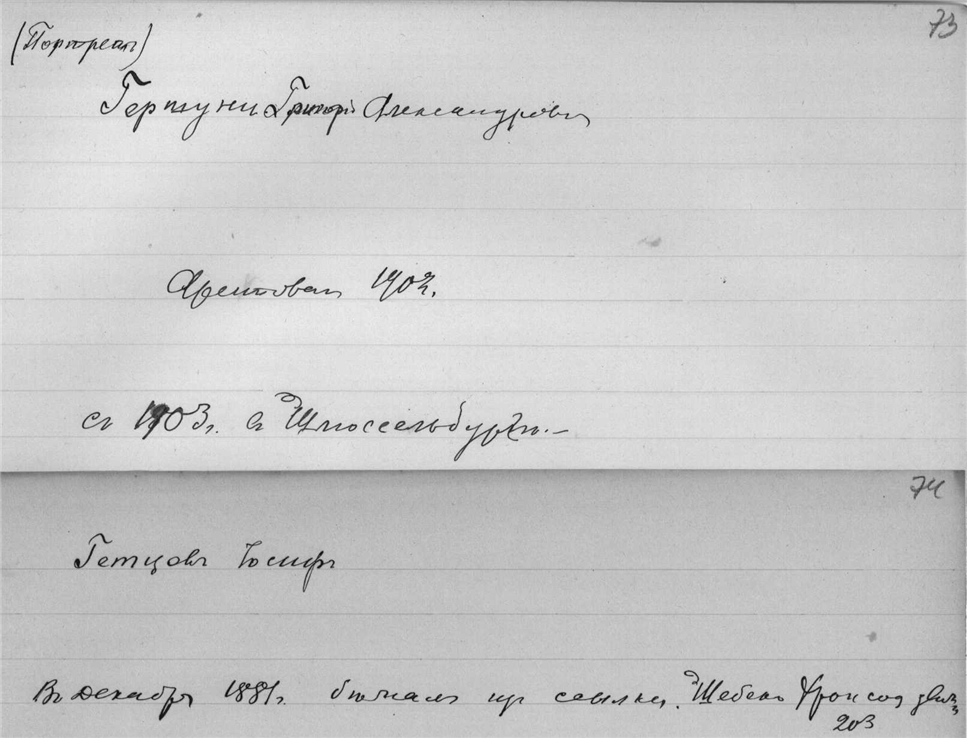 73
(Портрет)
Гершуни Григорій Александровъ
Арестованъ 1902.
съ 1903 г. въ Шлюссельбургѣ. –
74
Гетцовъ Іосифъ
Въ декабрѣ 1881 г. бѣжалъ изъ ссылки. Шебеко Хрон соц движ
203